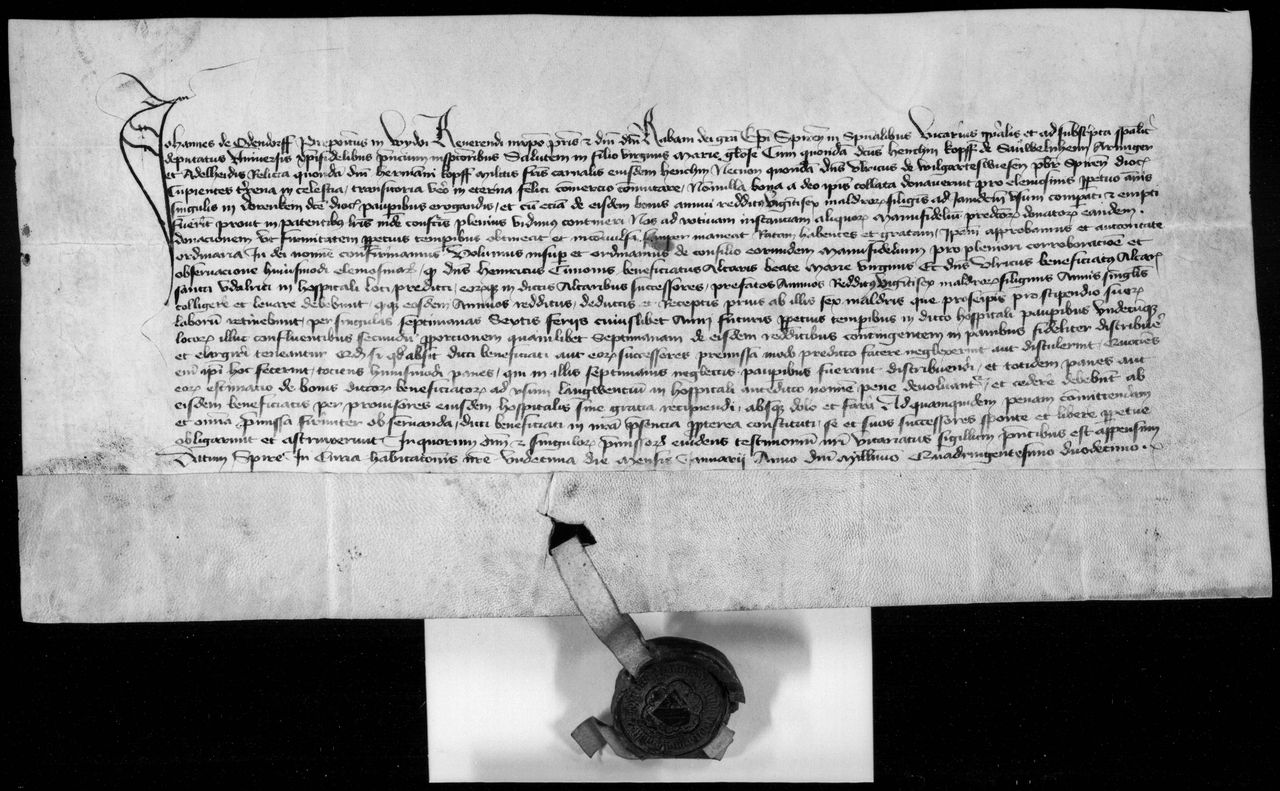 Johannes de Odendorff Prepositus in Wydē Reverendi in xpo pr̄is & dn̄i dn̄i Rabani dei grā Epī Spireñ in Spūalibus Vicarius gn̄alis et ad subscripta spāliter
deputatus Universis xpīfidelibus pn̄cium inspectoribus Salutem in filio virginis Marie gl̄ose Cum quondā dc̄us Henchin Kopff de
et Adelheidis Relicta quondā dn̄i Hermāni Kopff militis fr̄is carnalis eiusdem Henchin Necnon quondā dn̄s Ulricus de Wilgartеswesen pb̄r Spireñ dioc̄
Cupientes t'rena in celestia, transitoria vero in eterna felici com̄ercio com̄utare, Nōnulla bona a deo ip̄is collata donaverint pro elemosinis p̄petuo
singulis in dc̄e dioc̄ paup̄ibus erogandis, et cū eciā de eisdem bonis annui reddit' vigintisex maldror' siliginis ad usum comparati et empti
fuerīt prout in patentibus lr̄is inde confectis plenius vidimus contineri Nos ad votivam instanciam aliquor' Manufideliū predc̄or' donator' eandem
donacionem ut firmitatem p̄petuis temporibus obtineat et inconvulsa semper maneat Ratam habentes et gratam, Ip̄am approbamus et auctoritate
ordinaria In dei nomine confirmamus Volumus insup̄ et ordinamus de consilio eorundem Manufidelium pro pleniori corroboracōe et
observacione huiusmodi elemosinar' q dn̄s Heinricus Cimonis beneficiatus Altaris beate Marie virginis Et dn̄s Ulricus beneficiat' Altar'
sancti Udalrici in hospitali loci predicti, eorq̄ in dictis Altaribus successores, prefatos Annuos Reddit' vigintisex maldror' siliginis Annis singl̄is
colligere et levare debebunt, q̄q eosdem Annuos redditus, deductis et Receptis prius ab illis sex maldris que pro se ip̄is pro stipendio suor'
laborū retinebunt, per singulas septimanas Sextis ferijs cuiuslibet Anni futuris p̄petuis temporibus in dicto hospitali paup̄ibus undecūq̄
locor' illuc confluentibus secundū p̄porcionem quamlibet Septimanam de eisdem redditibus contingentem in panibus fideliter distribuere
et elargiri teneantur Qd si qd absit dicti beneficiati aut eor' successores premissa modo predicto facere neglexerint aut distulerint, Quocies
enī ip̄i hoc fecerint, tociens huiusmodi panes, qui in illis septimanis neglectis paup̄ibus fuerant distribuendi, et totidem panes aut
eor' estimatio de bonis dictor' beneficiator' ad usum langwencium in hospitali antedicto nomine pene devolvant', et cedere debebūt ab
eisdem beneficiatis per provisores eiusdem hospitalis sine gratia recipiendi, absq̄ dolo et fraude Ad quamquidem penam committendam
et omnia p̄missa firmiter observanda, dicti beneficiati in nr̄a p̄sencia p̄pterea constituti, se et suos successores sponte et libere p̄petue
obligarunt et astrinxerunt In quorum om̄i & singulor' p̄missor' evidens testimoniū nr̄i vicariatus sigillum pn̄tibus est appensum
Datum Spire In Curia habitationis nr̄e undecima die Mensis Januarij Anno dn̄i Millimo Quadringentesimo duodecimo